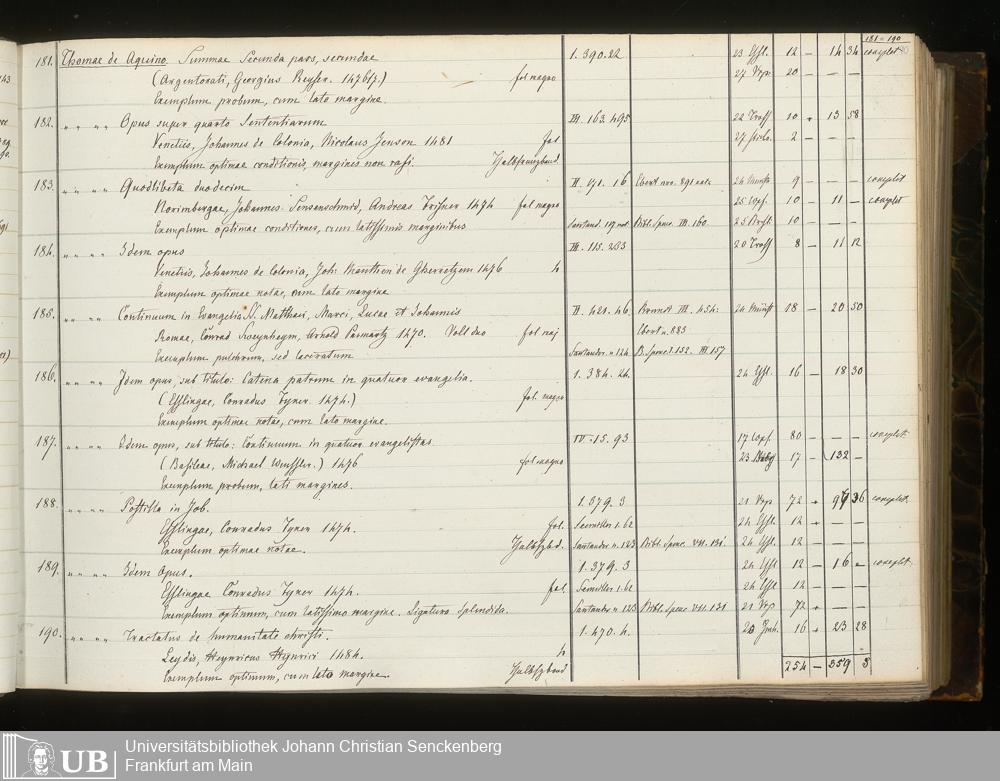 181 - 190
181. Thomae de Aquino. Summae Secunda pars, secundae 1. 390.22 23 Essl. 12 — 14 34 complet
(Argentorati, Georgius Reyser. 1476/7.) fol magno 27 20 — — —
Exemplum probum, cum lato margine.
182. „ „ „ „ Opus super quarto Sententiarum III. 163. 495 22 Tross 10 13 58
Venetiis, Johannes de Colonia, Nicolaus Jenson 1481 fol 27 2 — — —
Exemplum optimae conditionis, margines non rasi. Halbfranzband
183. „ „ „ „ Quodlibeta duodecim II. 171. 16 Ebert nro. 891 24 9 — — — complet
Norimbergae, Johannes Sensenschmid, Andreas Frisner 1474 fol magno 25 10 — 11 — complet
Exemplum optimae conditiones, cum latissimis marginibus Santand. 119 Bibl. Spenc. III. 160 25 10 — — —
184. „ „ „ „ Idem opus III. 115. 203 20 Tross 8 — 11 12
Venetiis, Johannes de Colonia, Joh: Manthen de Gherretzem 1476 4
Exemplum optimae notae, cum lato margine
185. „ „ „ „ Continuum in Evangelia St. Matthaei, Marci, Lucae et Johannis II. 421. 46. III. 454: 24 18 — 20 50
Romae, Conrad Sweynheym, Arnold Pannartz 1470. Voll duo fol maj Ebert n. 883
Exemplum pulchrum, sed laceratum Santander. n 124 B. Spenc. I. 152. III 157
186. „ „ „ „ Idem opus, sub titulo: Catena patrum in quatuor evangelia. 1. 384. 24. 24 Essl. 16 — 18 30
(Esslingae, Conradus Fyner 1474.) fol. magno
Exemplum optimae notae, cum lato margine.
187. „ „ „ „ Idem opus, sub titulo: Continuum in quatuor evangelistas IV. 15. 93 17 80 — — — complet
(Basileae, Michael Wenssler.) 1476 fol magno 23 17 — 132 —
Exemplum probum, lati margines.
188. „ „ „ „ Postilla in Job. 1. 379. 3 21 72 36 complet.
Esslingae, Conradus Fyner 1474. fol. Semiller 1. 62 24 Essl. 12 — — —
Exemplum optimae notae. Halbfzbd. Santander n. 123 Bibl. Spenc. VII. 131 24 Essl. 12 — — —
189. „ „ „ „ Idem Opus. 1. 379. 3 24 Essl 12 — 16 — complet.
Esslingae Conradus Fyner 1474. fol. Semiller 1. 62 24 Essl 12 — — —
Exemplum optimum, cum latissimo margine. Ligatura splendida. Santander n. 123 Bibl. Spenc. VII. 131 21 72 — — —
190. „ „ „ „ Tractatus de humanitate christi. 1. 470. 4. 20 16 23 28
Leydis, Heynricus Heynrici 1484. 4
Exemplum optimum, cum lato margine. Halbfzband 254 — 259 3
UB Universitätsbibliothek Johann Christian Senckenberg
Frankfurt am Main